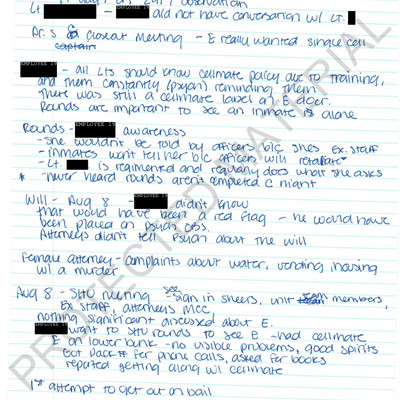 observation
Lt. - did not have conversation w/ Lt.
Dr. S closeout meeting - E really wanted single cell
captain
- all Lts should know cellmate policy due to training,
and them constantly (psych) reminding them
There was still a cellmate label on E door.
Rounds are important to see an inmate is alone
Rounds - EMPLOYEE awareness
- She wouldn't be told by officers b/c shes Ex. Staff
- inmates wont tell her b/c officers will retaliate
- Lt. is regimented and regularly does what she asks
* - never heard rounds aren't completed @ night
Will - Aug 8 - didn't know
that would have been a red flag - he would have
been placed on psych obs.
Attorneys didn't tell psych about the will
Female attorney - complaints about water, vending, housing
w/ a murder
Aug 8 - SHU meeting - see sign in sheets, unit team members,
Ex Staff, attorneys MCC,
nothing significant discussed about E.
EMPLOYEE went to SHU rounds to see E - had cellmate
E on lower bunk - no visible problems, good spirits
Got Pack # for phone calls, asked for books
reported getting along w/ cellmate
1st attempt to get out on bail
PROTECTED MATERIAL